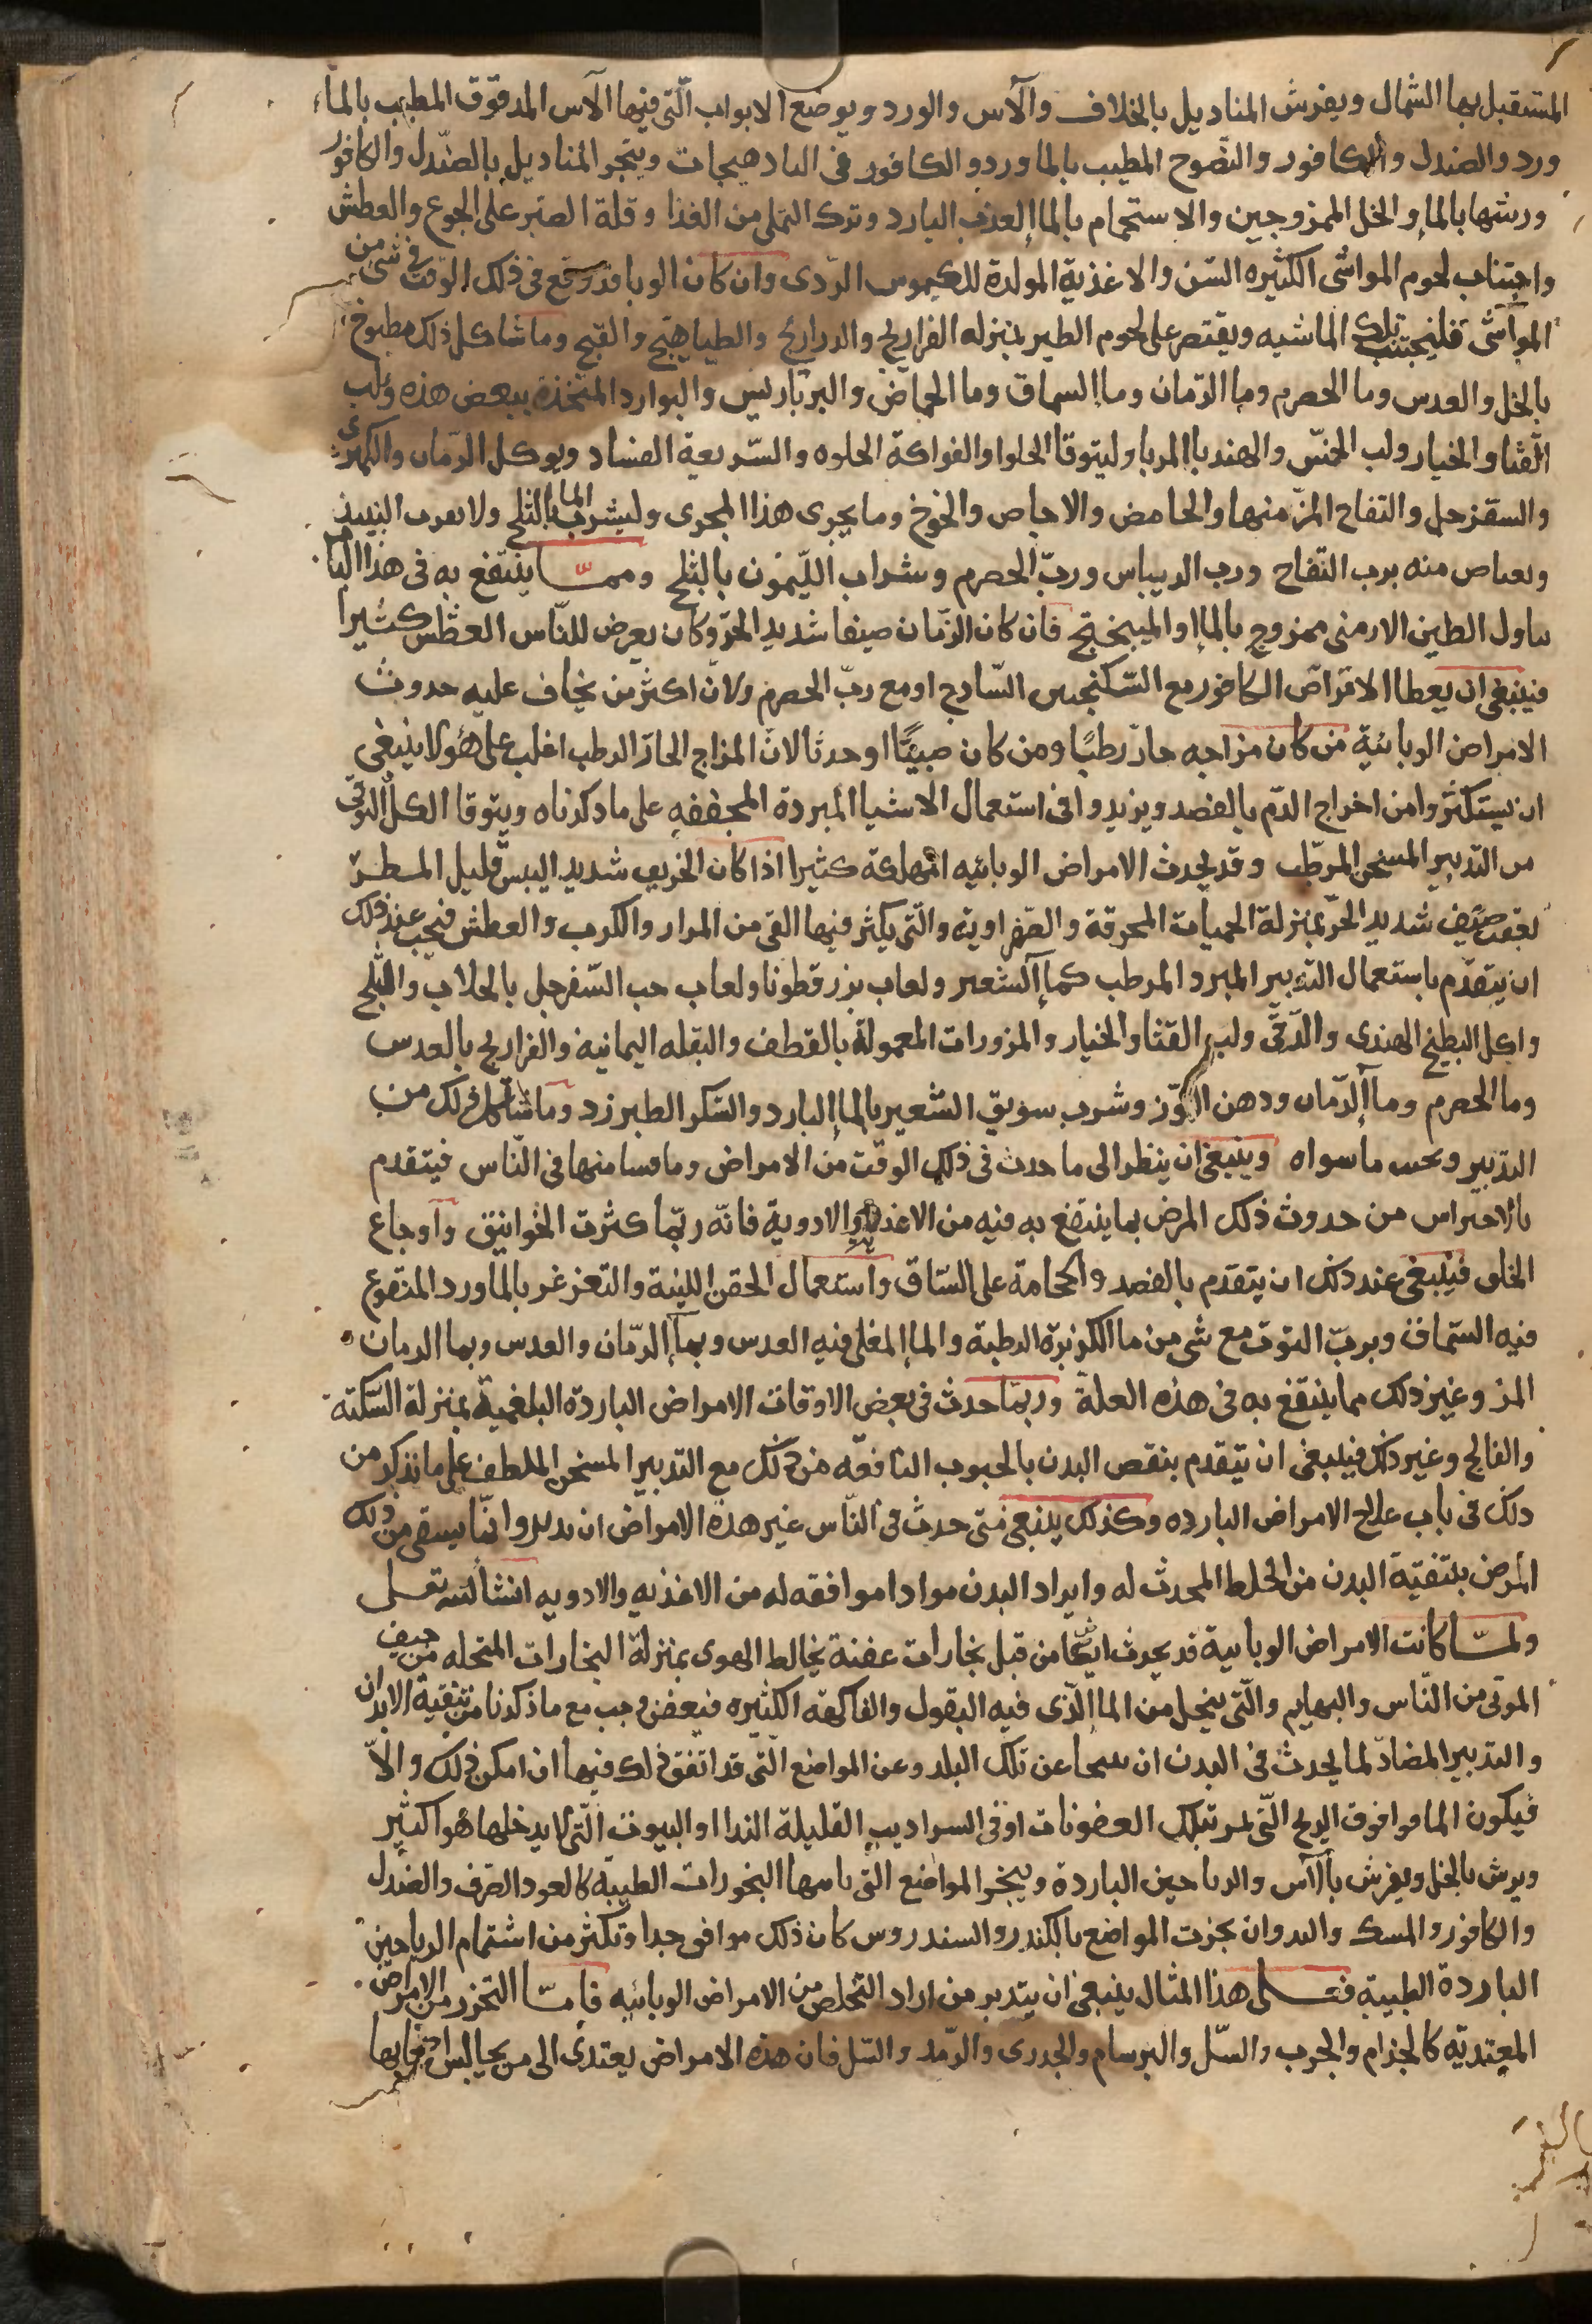 المستقبل بها الشمال ويفرش المناديل بالخلاف والآس والورد ويوضع الابواب الّتى فيها الآس المدقوق المطيب بالماء
ورد والصندل والكافور والنضوح المطيب بالماورد والكافور فى البادهبجات ويبخر المناديل بالصّندل والكافور
ورشها بالماء والخل الممزوجين والاستحمام بالماء العذب البارد وترك التملى من الغذا وقلة الصبر على الجوع والعطش
واجتناب لحوم المواشى الكثيره السّن والاغذية المولدة للكيموس الردى وان كان الوبا قد وقع فى ذلك الوقت فى شى من
المواشى فليجتنب تلك الماشيه ويقتصر على لحوم الطير بمنزله الفراريج والدراريج والطياهيج والقبج وما شاكل ذلك مطبوخ
بالخل والعدس وما الحصرم وما الرّمان وما السماق وما الحماض والبرباريس والبوارد المتخذة ببعض هذه ولب
القثا والخيار ولب الخسّ والهندبا المربا وليتوقا الحلوا والفواكه الحلوه والسّريعة الفساد ويوكل الرمّان والكمثرى
والسفرجل والتفاح المزّ منها والحامض والاجاص والخوخ وما يجرى هذا المجرى وليشرب الما بالثلج ولا يقرب النبيذ
ويعتاض منه برب التفاح ورب الريباس وربّ الحصرم وشراب اللّيمون بالثلج وممّا ينتفع به فى هذا الباب
تناول الطين الارمنى ممزوج بالما او الميبختج فان كان الزّمان صيفا شديد الحرّ وكان يعرض للنّاس العطش كثيرا
فينبغى ان يعطا الاقراص الكافور مع السّكنجبين السّادج او مع ربّ الحصرم ولان اكثر من يخاف عليه حدوث
الامراض الوبائية من كان مزاجه حارّ رطبًا ومن كان صبيًّا او حدثا لانّ المزاج الحارّ الرطب اغلب على هولا ينبغى
ان يستكثروا من اخراج الدّم بالفصد ويزيدوا فى استعمال الاشيا المبردة المجففه على ما ذكرناه ويتوقا الكل التوقى
من التدبير المسخن المرطب وقد يحدث الامراض الوبائيه المهلكة كثيرا اذا كان الخريف شديد اليبس قليل المطر
بعقب صيف شديد الحرّ بمنزلة الحميات المحرقة والصّفراوية والّتى يكثر فيها القى من المرار والكرب والعطش فيجب عند ذلك
ان يتقدّم باستعمال التدبير المبرد المرطب كما الشعير ولعاب بزر قطونا ولعاب حب السّفرجل بالجلاب والثلج
واكل البطيخ الهندى والدّقّى ولب القثا والخيار والمزورات المعمولة بالقطف والبقله اليمانيه والفراريج بالعدس
وما الحصرم وما الرّمان ودهن اللّوز وشرب سويق الشّعير بالما البارد والسكر الطبرزد وما شاكل ذلك من
التدبير ويجتنب ما سواه وينبغى ان ينظر الى ما حدث فى ذلك الوقت من الامراض وما فشا منها فى النّاس فيتقدم
بالاحتراس من حدوث ذلك المرض بما ينتفع به فيه من الاغذية والادوية فانّه ربّما كثرت الخوانيق واوجاع
الحلق فينبغى عند ذلك ان يتقدم بالفصد والحجامة على السّاق واستعمال الحقن اللينة والتغرغر بالماورد المنقوع
فيه السّماق وبربّ التوت مع شى من ما الكزبرة الرطبة والما المغلى فيه العدس وبما الرّمان والعدس وبما الرمان
المز وغير ذلك مما ينتفع به فى هذه العلة وربّما حدث فى بعض الاوقات الامراض الباردة البلغمية بمنزلة السّكته
والفالج وغير ذلك فينبغى ان يتقدم بنقص البدن بالحبوب النافعه من ذلك مع التدبير المسخن الملطف على ما نذكر من
ذلك فى باب علاج الامراض البارده وكذلك ينبغى متى حدث فى النّاس غير هذه الامراض ان يدبروا انّما يستقى من ذلك
المرض بتنقية البدن من الخلط المحدث له وايراد البدن موادا موافقه له من الاغذيه والادويه انشا الله تعالى
ولمّا كانت الامراض الوبايية قد يحدث ايضا من قبل بخارات عفنة يخالط الهوى بمنزلة البخارات المتحله من جيف
الموتى من النّاس والبهايم والّتى يتحلل من الما الّذى فيه البقول والفاكهة الكثيره فيعفن وجب مع ما ذكرنا من تنقية الابدان
والتدبير المضادّ لما يحدث فى البدن ان يتنحا عن تلك البلد وعن المواضع الّتى قد اتّفق ذلك فيها ان امكن ذلك والّا
فيكون الما وافوق الريح الّتى تمر بتلك العفونات او فى السراديب القليلة الندا او البيوت الّتى لا يدخلها هوا كثير
ويرش بالخل ويفرش بالآس والرياحين الباردة ويبخر المواضع الّتى ياتيها البخورات الطيبه كالعود الصّرف والصندل
والكافور والمسك والند وان بخرت المواضع بالكندر والسندروس كان ذلك موافق جدا وتكثر من اشتمام الرياحين
الباردة الطيبية فعلى هذا المثال ينبغى ان يتدبر من اراد التخلص من الامراض الوبائيه فامّا التحرز من الامراض
المعتديّه كالجذام والجرب والسّل والبرسام والجدرى والرّمد والسّل فان هذه الامراض يعتدى الى من يجالس اصحابها